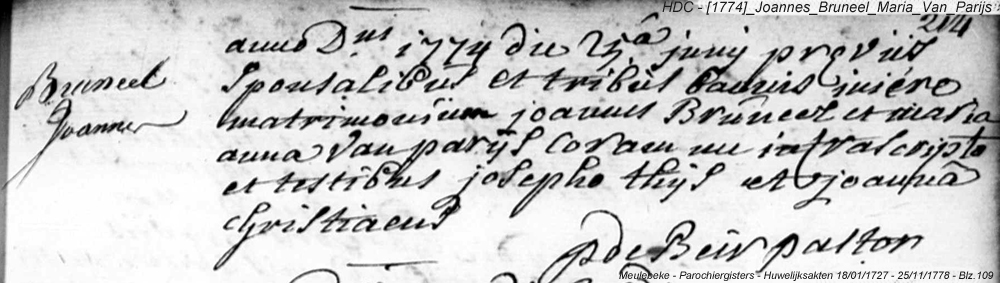 HDC - [1774]_Joannes_Bruneel_Maria_Van_Parijs
214
anno Dni 1774 die 25â junij previis
Bruneel
Joannes
sponsalibus et tribus bannis iniere
matrimonium joannes Bruneel et maria
anna Van parijs coram me infrascripto
et testibus josepho thijs et joanna
Christiaens
p de Beir pastor
Meulebeke - Parochiergisters - Huwelijksakten 18/01/1727 - 25/11/1778 - Blz.109